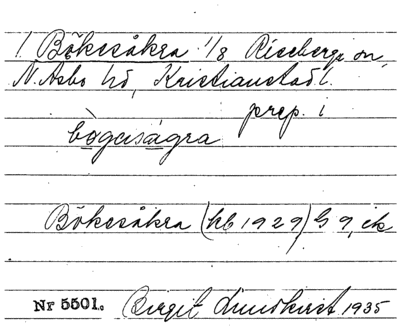 1. Bökesåkra 1/8 Riseberga sn,
N. Åsbo hd, Kristianstad l.
prep. i
bögasågra
Bökesåkra (kb 1929) G 9, ek
Nr 5501. Birgit Lundkvist 1935